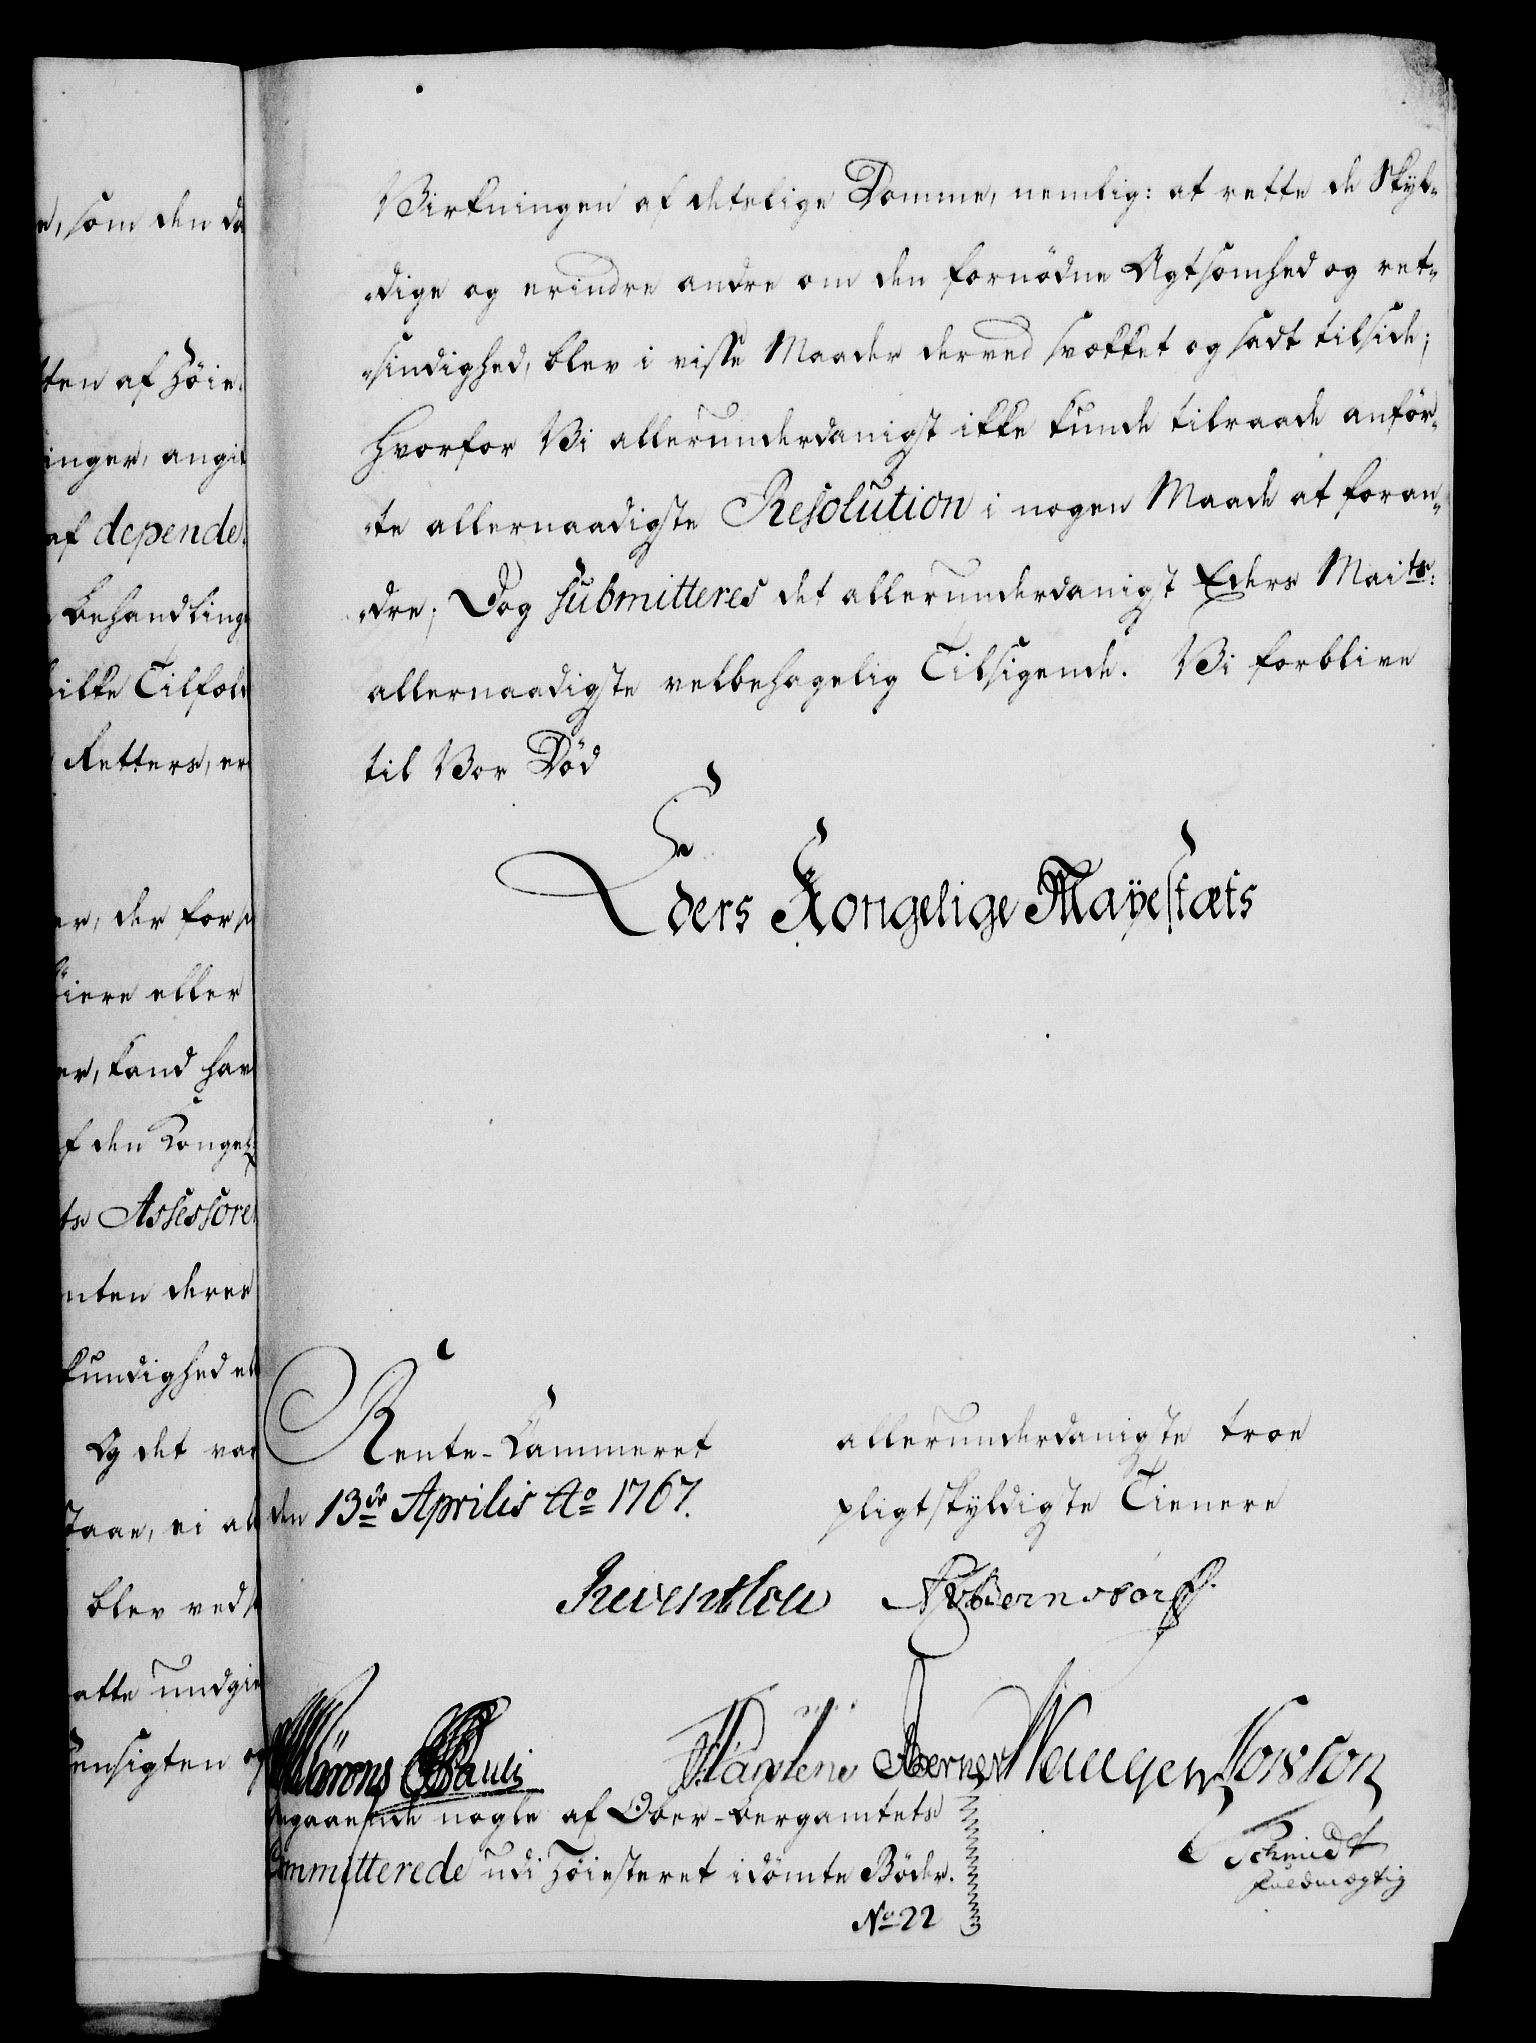 e, som den da
ten af Høie
inger, angit
af depende
behandling
ilke Tilfæl
Retters, er
er, der for
øiere eller
er, kand hav
f den Kongel:
ts Assessore
nten deres
kundighed el
Og det var
staae, ei al
blev ved
atte undgie
hensigten og
Virkningen af deslige Domme, nemlig: at rette de Skyl-
dige og erindre andre om den fornødne Agtsomhed og ret-
sindighed, blev i visse Maader derved svækket og sadt tilside;
hvorfor Vi allerunderdanigst ikke kunde tilraade anför-
te allernaadigste Resolution i nogen Maade at foran-
dre; Dog submitteres det allerunderdanigst Eders Maits:
allernaadigste velbehagelig Tilsigende. Vi forblive
til Vor Död
Eders Kongelige Mayestæts
Rente-Kammeret
den 13de Aprilis Ao 1767.
allerunderdanigste troe
pligtskyldigste Tienere
Reventlou
Bernstorff
Pauli
Berner
Schmidt
fuldmægtig
angaaende nogle af Ober-bergamtets
Committerede udi Höiesteret idömte Böder.
No 22